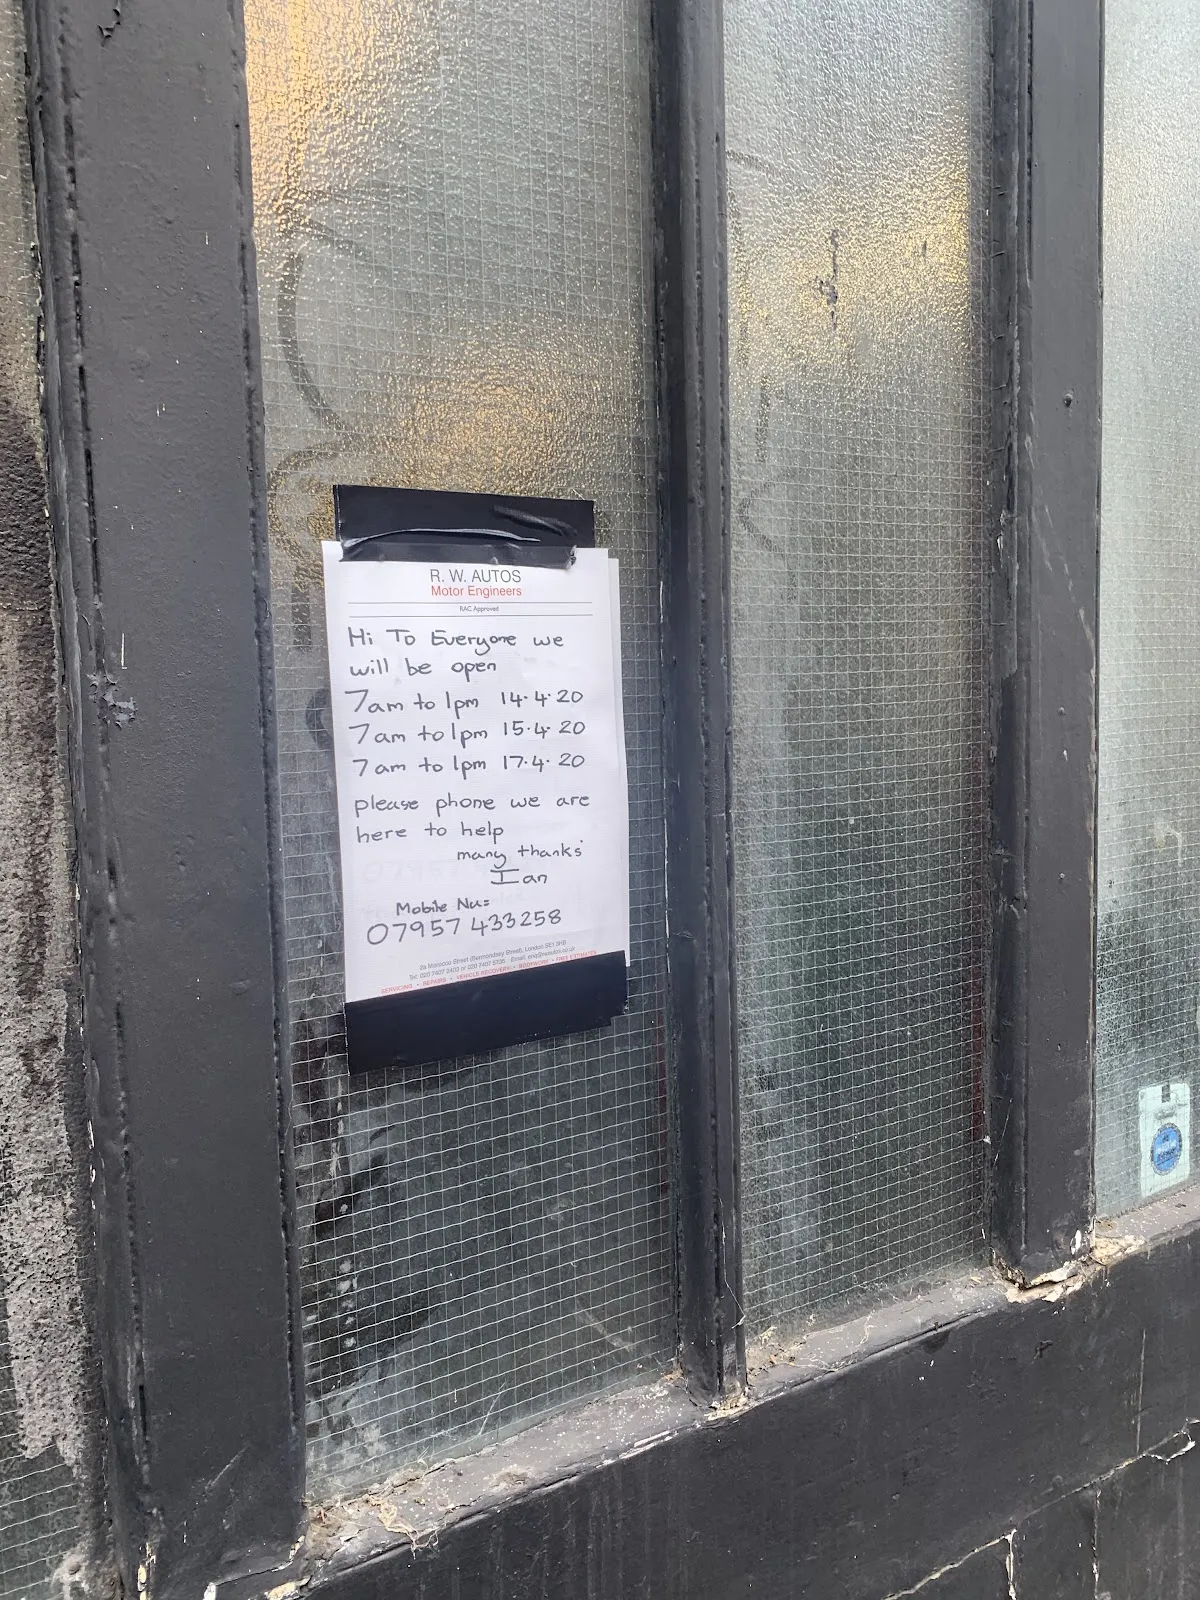 R. W. AUTOS
Motor Engineers
RAC Approved
Hi To Everyone we
will be open
7am to 1pm 14.4.20
7am to 1pm 15.4.20
7am to 1pm 17.4.20
please phone we are
here to help
many thanks
Ian
Mobile Nu=
07957 433258
8a Morocco Street (Bermondsey Street), London SE1 3HB
Tel: 020 7407 2403 or 020 7407 5735 Email:
SERVICING • REPAIRS • VEHICLE RECOVERY • BODYWORK • FREE ESTIMATES